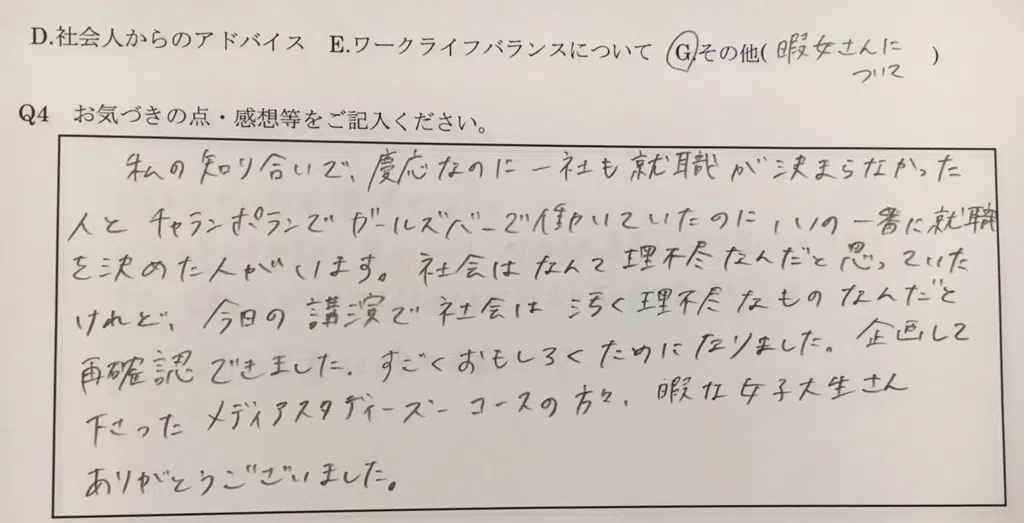 D.社会人からのアドバイス E.ワークライフバランスについて G.その他(暇女さんに
ついて)
Q4 お気づきの点・感想等をご記入ください。
私の知り合いで、慶応なのに一社も就職が決まらなかった
人とチャランポランでガールズバーで働いていたのに、いの一番に就職
を決めた人がいます。社会はなんて理不尽なんだと思っていた
けれど、今日の講演で社会は汚く理不尽なものなんだと
再確認できました。すごくおもしろくためになりました。企画して
下さったメディアスタディーズコースの方々、暇な女子大生さん
ありがとうございました。